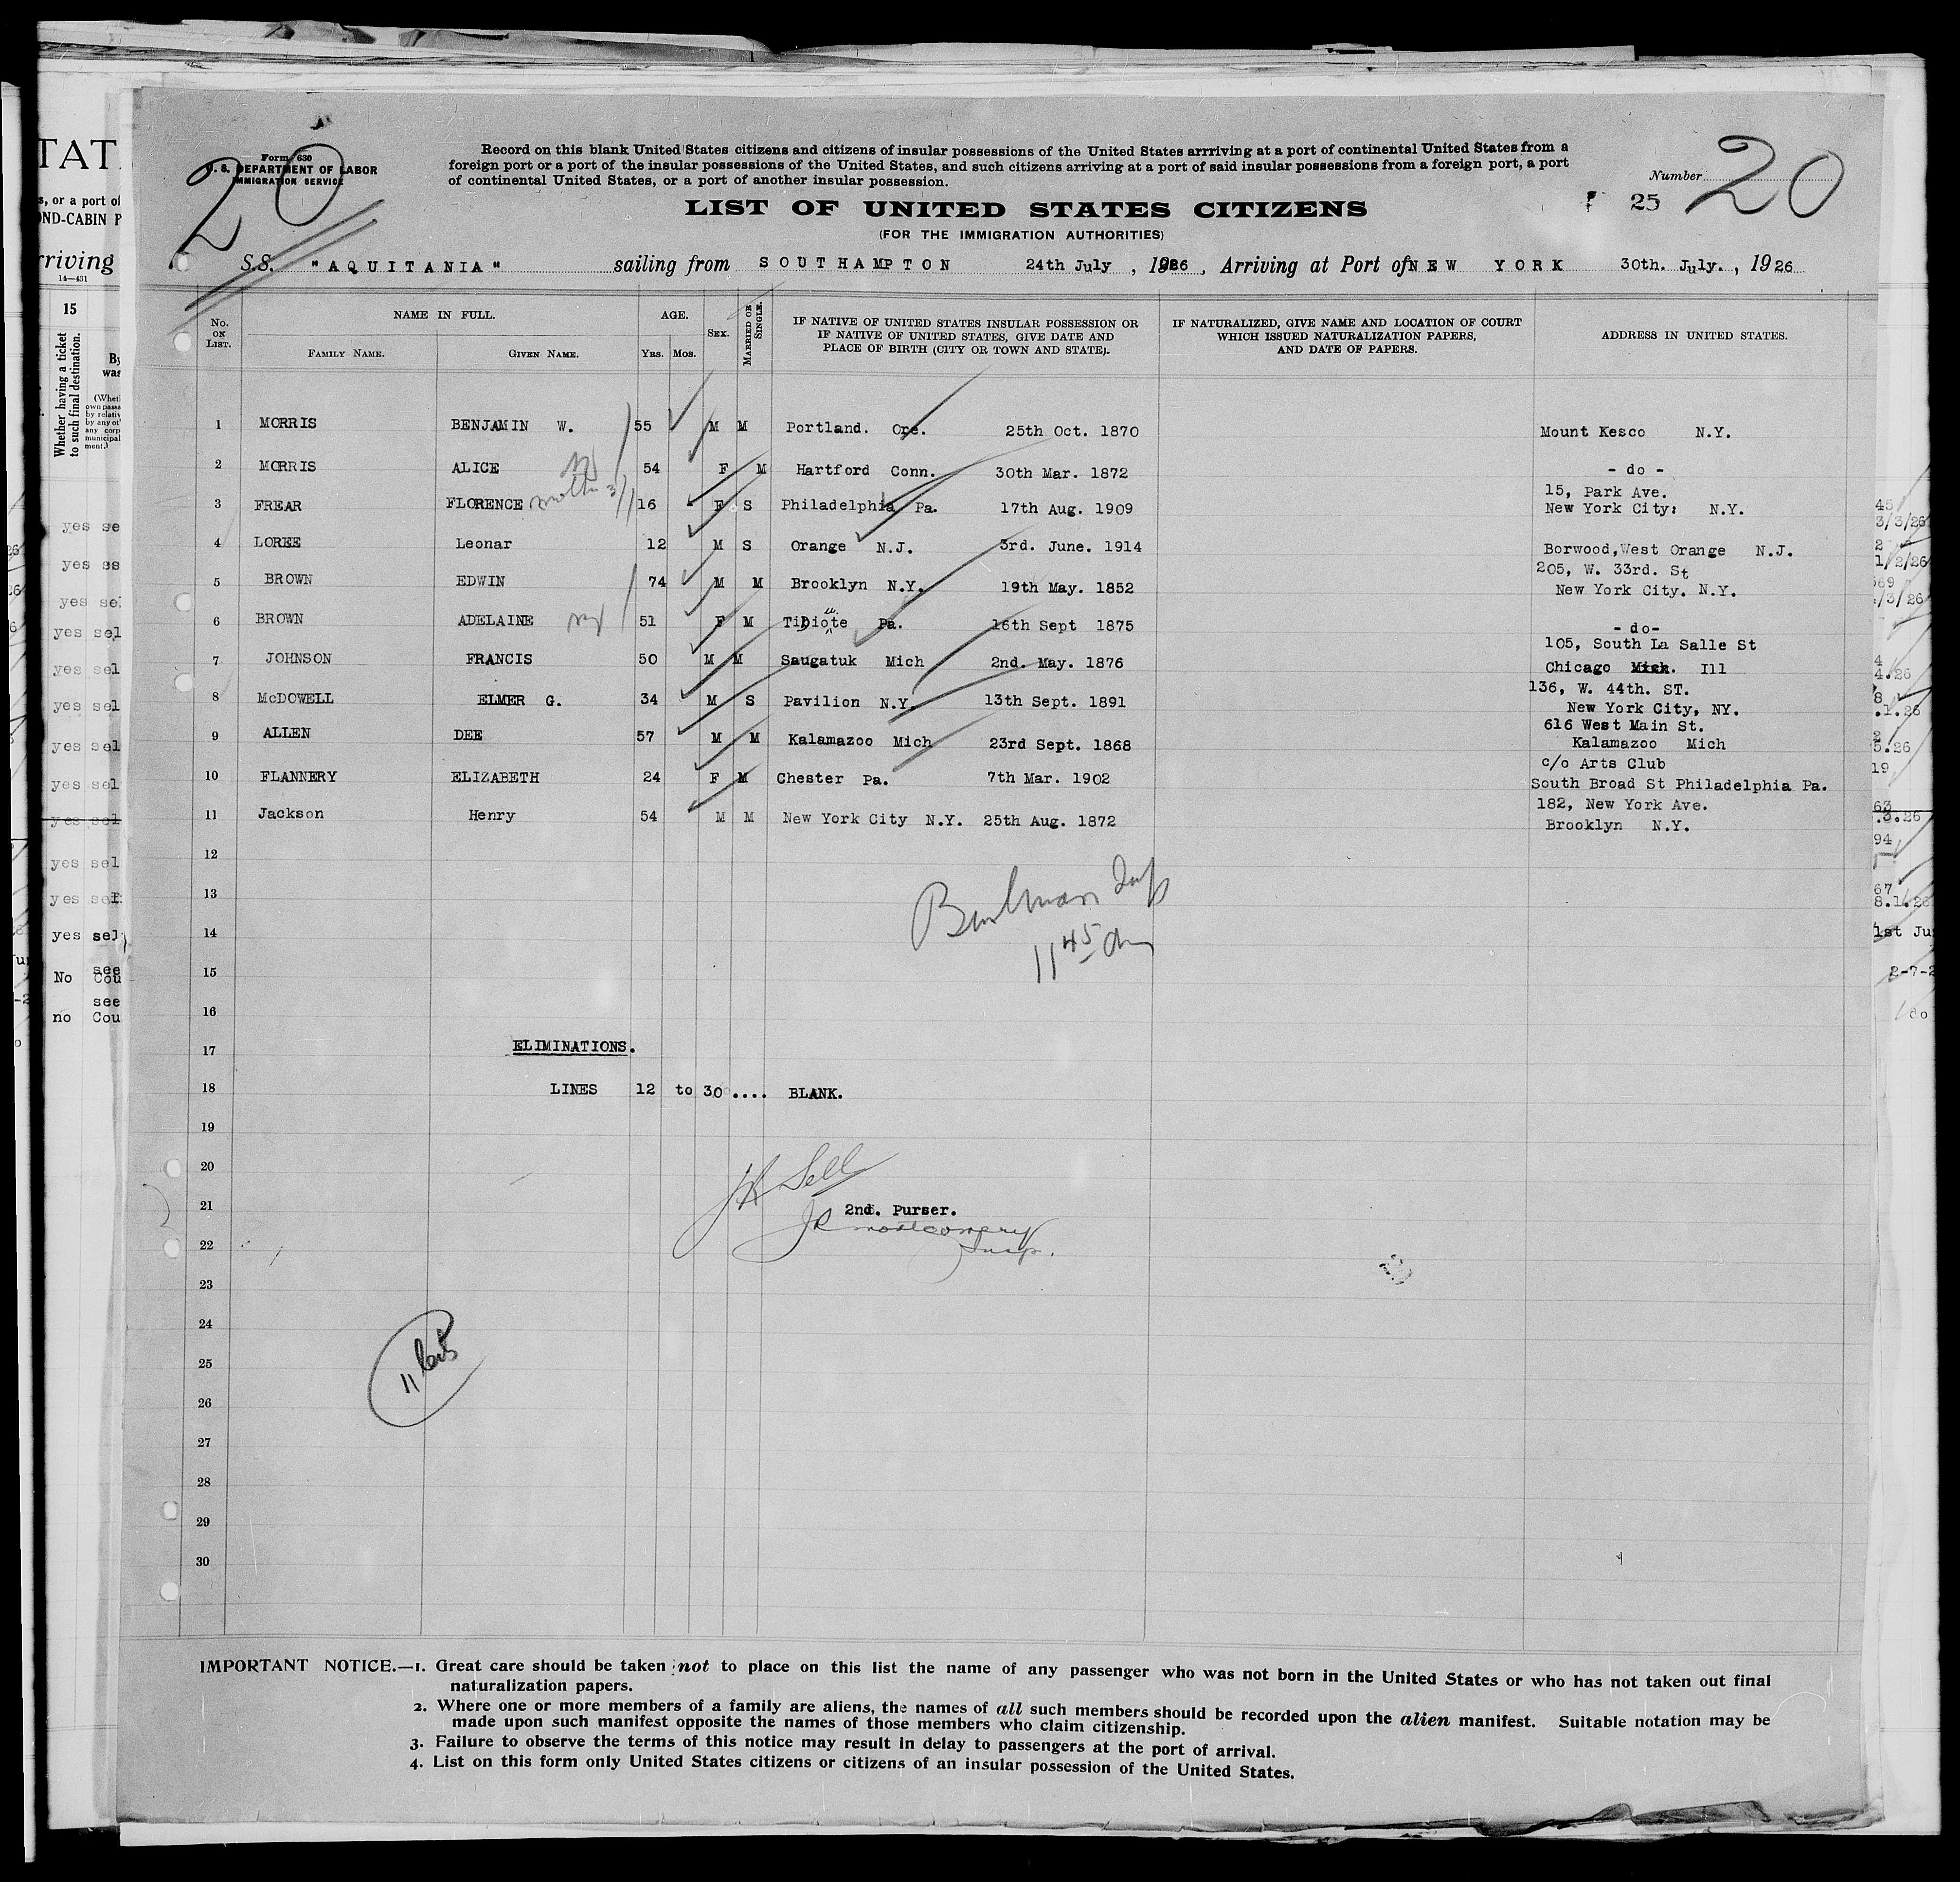 Form 630
U. S. DEPARTMENT OF LABOR
IMMIGRATION SERVICE
20
Record on this blank United States citizens and citizens of insular possessions of the United States arrriving at a port of continental United States from a
foreign port or a port of the insular possessions of the United States, and such citizens arriving at a port of said insular possessions from a foreign port, a port
of continental United States, or a port of another insular possession.
Number 20
25
LIST OF UNITED STATES CITIZENS
(FOR THE IMMIGRATION AUTHORITIES)
S.S. "AQUITANIA" sailing from SOUTHAMPTON 24th July, 1926, Arriving at Port of NEW YORK 30th. July., 1926
No. ON LIST. NAME IN FULL. FAMILY NAME. GIVEN NAME. AGE. YRS. MOS. SEX. MARRIED OR SINGLE. IF NATIVE OF UNITED STATES INSULAR POSSESSION OR IF NATIVE OF UNITED STATES, GIVE DATE AND PLACE OF BIRTH (CITY OR TOWN AND STATE). IF NATURALIZED, GIVE NAME AND LOCATION OF COURT WHICH ISSUED NATURALIZATION PAPERS, AND DATE OF PAPERS. ADDRESS IN UNITED STATES.
1 MORRIS BENJAMIN W. 55 M M Portland. Ore. 25th Oct. 1870 Mount Kesco N.Y.
2 MORRIS ALICE 54 F M Hartford Conn. 30th Mar. 1872 - do -
3 FREAR FLORENCE 16 F S Philadelphia Pa. 17th Aug. 1909 15, Park Ave.
New York City: N.Y.
4 LOREE Leonar 12 M S Orange N.J. 3rd. June. 1914 Borwood,West Orange N.J.
5 BROWN EDWIN 74 M M Brooklyn N.Y. 19th May. 1852 205, W. 33rd. St
New York City. N.Y.
6 BROWN ADELAINE 51 F M Pa. 16th Sept 1875 - do-
7 JOHNSON FRANCIS 50 M M Saugatuk Mich 2nd. May. 1876 105, South La Salle St
Chicago Ill
8 McDOWELL ELMER G. 34 M S Pavilion N.Y. 13th Sept. 1891 136, W. 44th. ST.
New York City, NY.
9 ALLEN DEE 57 M M Kalamazoo Mich 23rd Sept. 1868 616 West Main St.
Kalamazoo Mich
10 FLANNERY ELIZABETH 24 F M Chester Pa. 7th Mar. 1902 c/o Arts Club
South Broad St Philadelphia Pa.
11 Jackson Henry 54 M M New York City N.Y. 25th Aug. 1872 182, New York Ave.
Brooklyn N.Y.
12
13
14 11 45 am
15
16
17 ELIMINATIONS.
18 LINES 12 to 30 .... BLANK.
19
20
21 2nd. Purser.
JR Montgomery
22 Insp.
23
24
25
26
27
28
29
30
IMPORTANT NOTICE.—1. Great care should be taken not to place on this list the name of any passenger who was not born in the United States or who has not taken out final
naturalization papers.
2. Where one or more members of a family are aliens, the names of all such members should be recorded upon the alien manifest. Suitable notation may be
made upon such manifest opposite the names of those members who claim citizenship.
3. Failure to observe the terms of this notice may result in delay to passengers at the port of arrival.
4. List on this form only United States citizens or citizens of an insular possession of the United States.